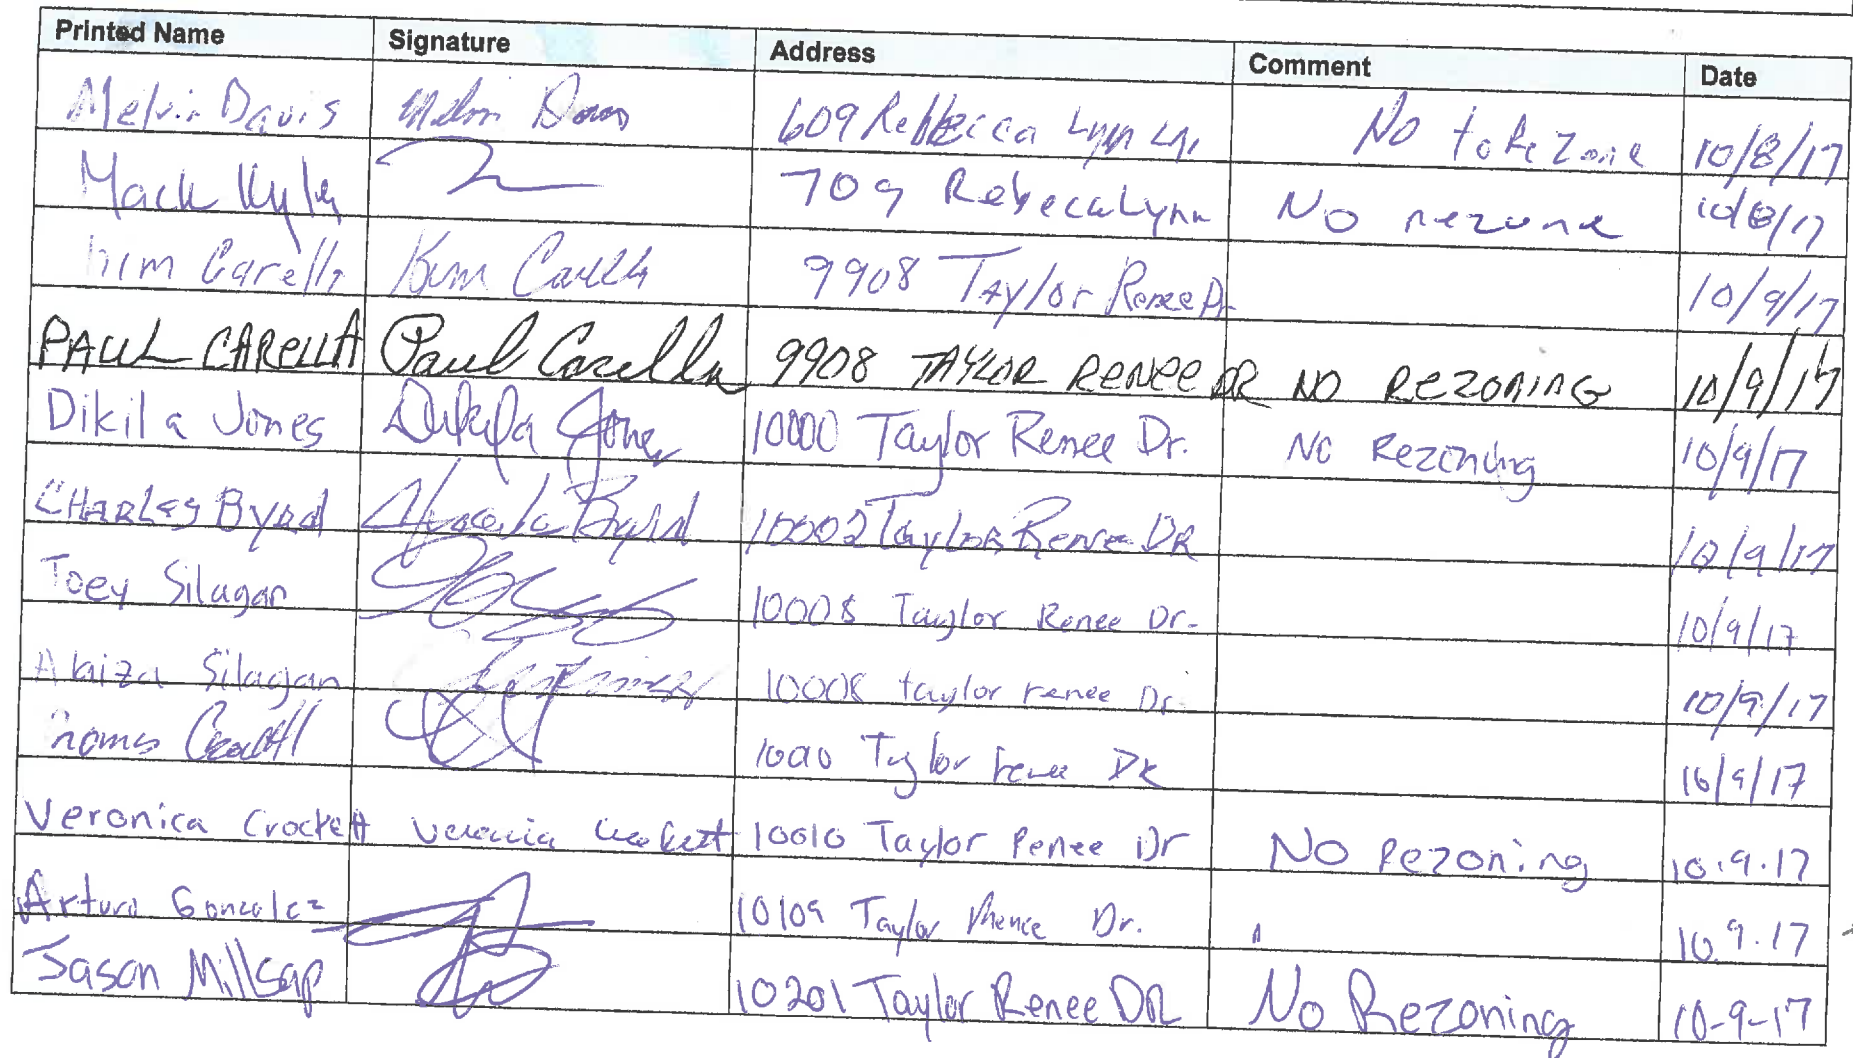 Printed Name Signature Address Comment Date
Melvin Davis Melvin Davis 609 Rebbecca Lynn Ln. No to Rezone 10/8/17
Mack Kyle 709 Rebecca Lynn No rezone 10/8/17
Kim Carella Kim Carella 9908 Taylor Renee Dr 10/9/17
PAUL CARELLA Paul Carella 9908 TAYLOR RENEE DR NO REZONING 10/9/17
Dikila Jones Dikila Jones 10000 Taylor Renee Dr. No Rezoning 10/9/17
CHARLES BYRd Charles Byrd 10002 Taylor Renee DR 10/9/17
Joey Silagan 10008 Taylor Renee Dr. 10/9/17
Silagan 10008 taylor renee Dr. 10/9/17
Taylor Renee DR 10/9/17
Veronica Crockett Veronica Crockett 10010 Taylor Renee Dr No Rezoning 10.9.17
Arturo Gonzalez 10109 Taylor Renee Dr. 10.9.17
Jason Millsap 10201 Taylor Renee DR No Rezoning 10-9-17